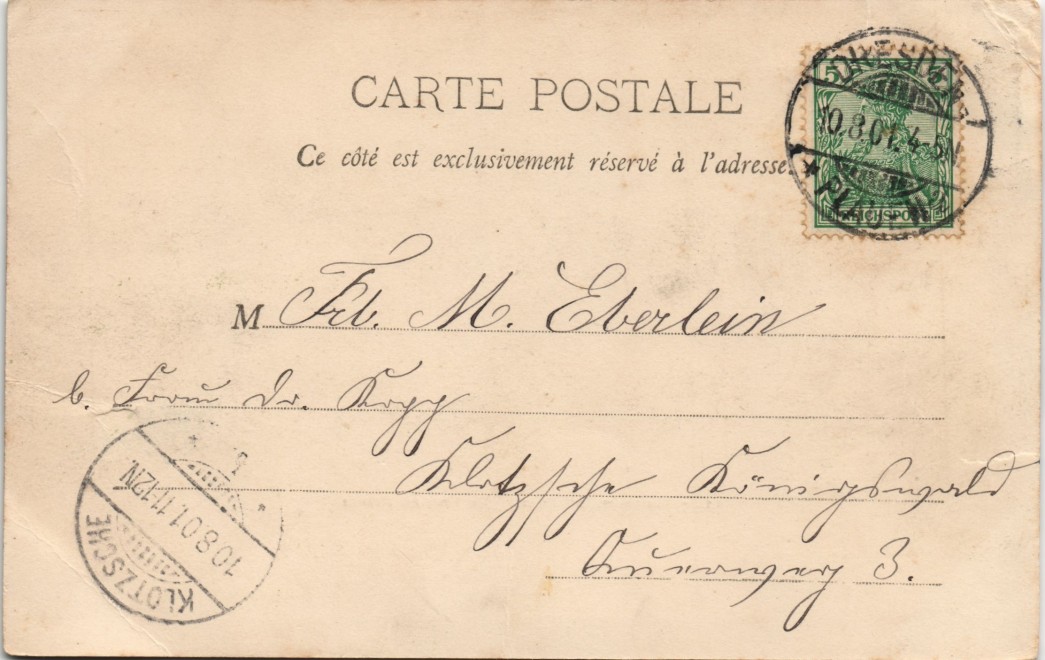 CARTE POSTALE
Ce côté est exclusivement réservé à l'adresse
5 5
REICHSPOST
DRESDEN
10.8.01. 4-5N
* PLAUEN
M Frl. M. Eberlein
b. Frau Dr. Kopp
Klotzsche Königswald
Querweg 3.
KLOTZSCHE
10.8.01.11-12N.